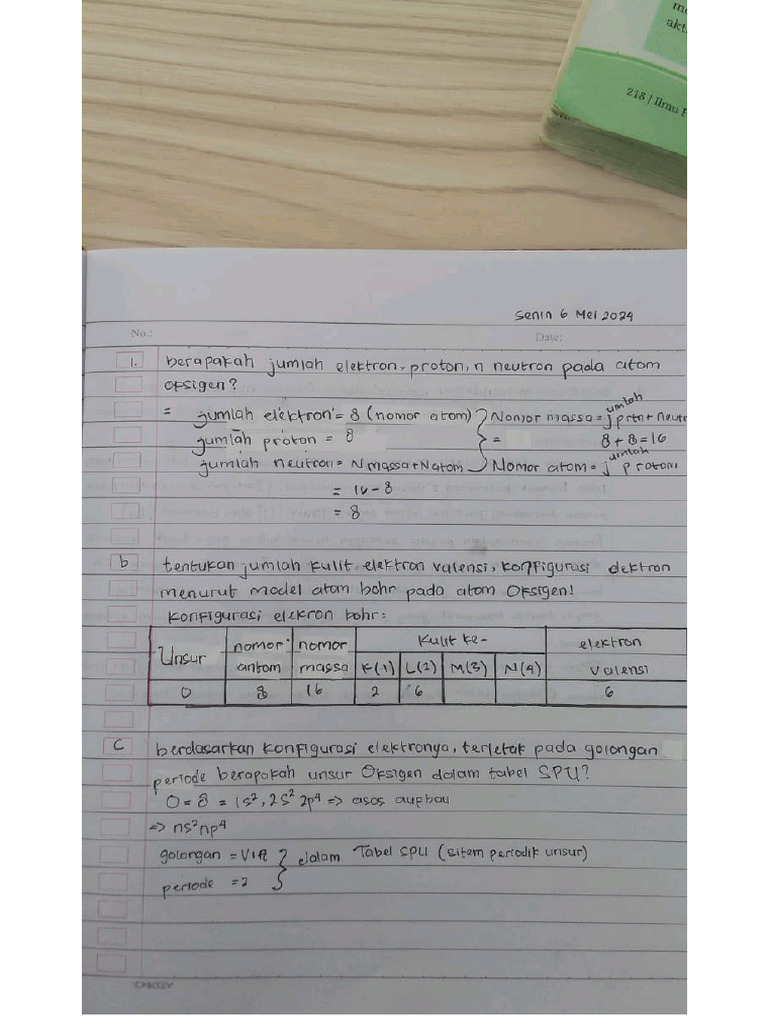 akt
218 / Ilmu
Senin 6 Mei 2024
No.:
Date:
1. berapakah jumlah elektron, proton, n neutron pada atom
oksigen?
= jumlah elektron = 8 (nomor atom) } Nomor massa = jumlah prtn + neutr
jumlah proton = 8 = 8+8=16
jumlah neutron = N massa + N atom Nomor atom = jumlah proton
= 16 - 8
= 8
b tentukan jumlah kulit, elektron valensi, konfigurasi elektron
menurut model atom bohr pada atom Oksigen!
Konfigurasi elekron bohr:
Unsur nomor antom nomor massa Kulit ke- elektron valensi
K(1) L(2) M(3) N(4)
O 8 16 2 6 6
C berdasarkan konfigurasi elektronya, terletak pada golongan
periode berapakah unsur Oksigen dalam tabel SPU?
O = 8 = 1s², 2s² 2p⁴ => asas aupbau
=> ns² np⁴
golongan = VIA } dalam Tabel SPU (sitem periodik unsur)
periode = 2